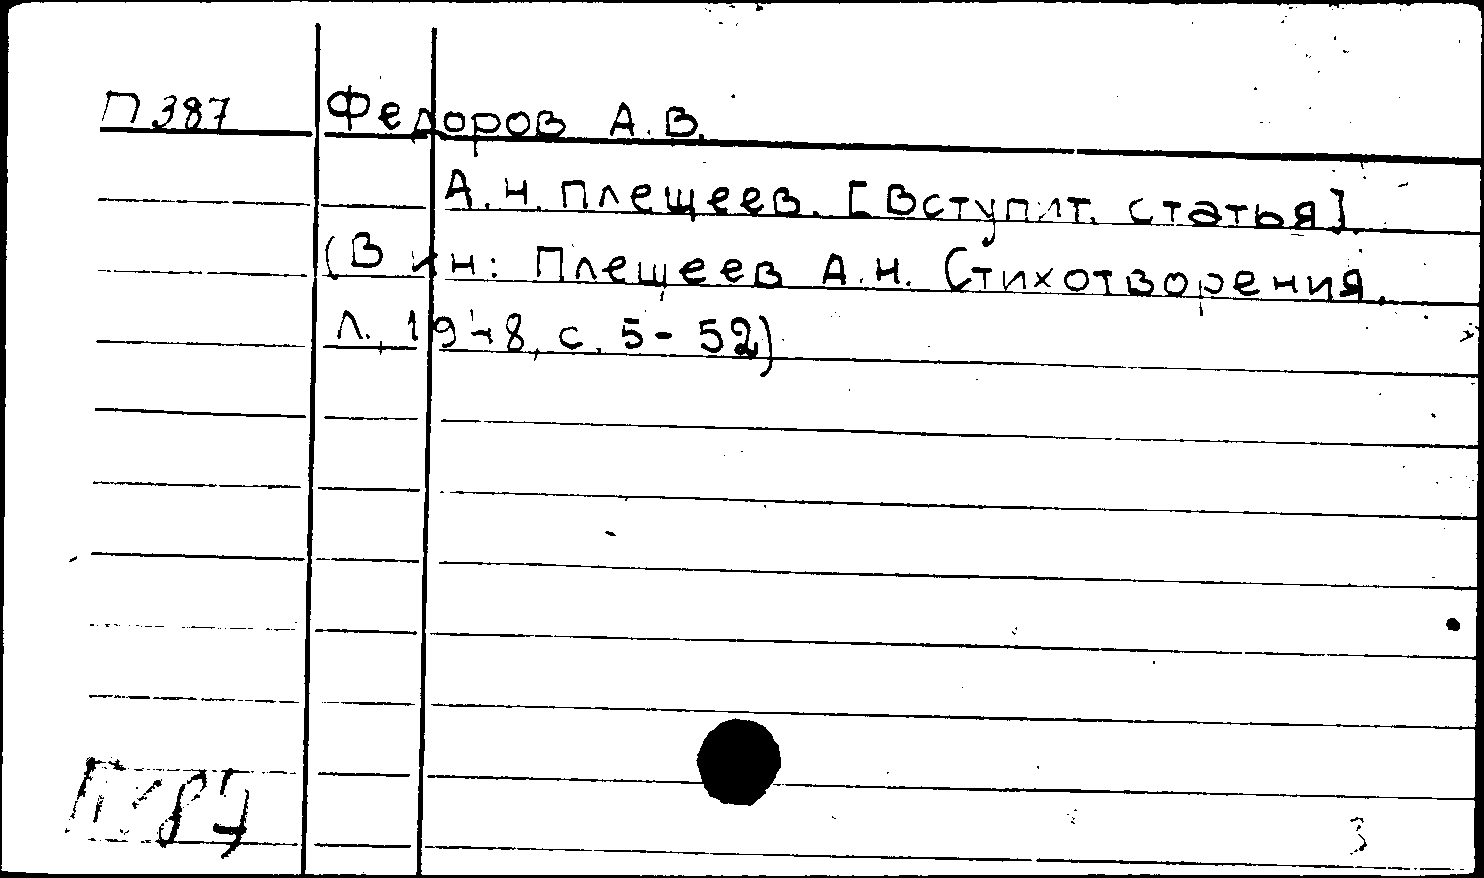 П 387 Федоров А.В.
А.Н. Плещеев. [Вступит. статья].
(В кн: Плещеев А.Н. Стихотворения.
Л., 1948, с. 5-52)
3